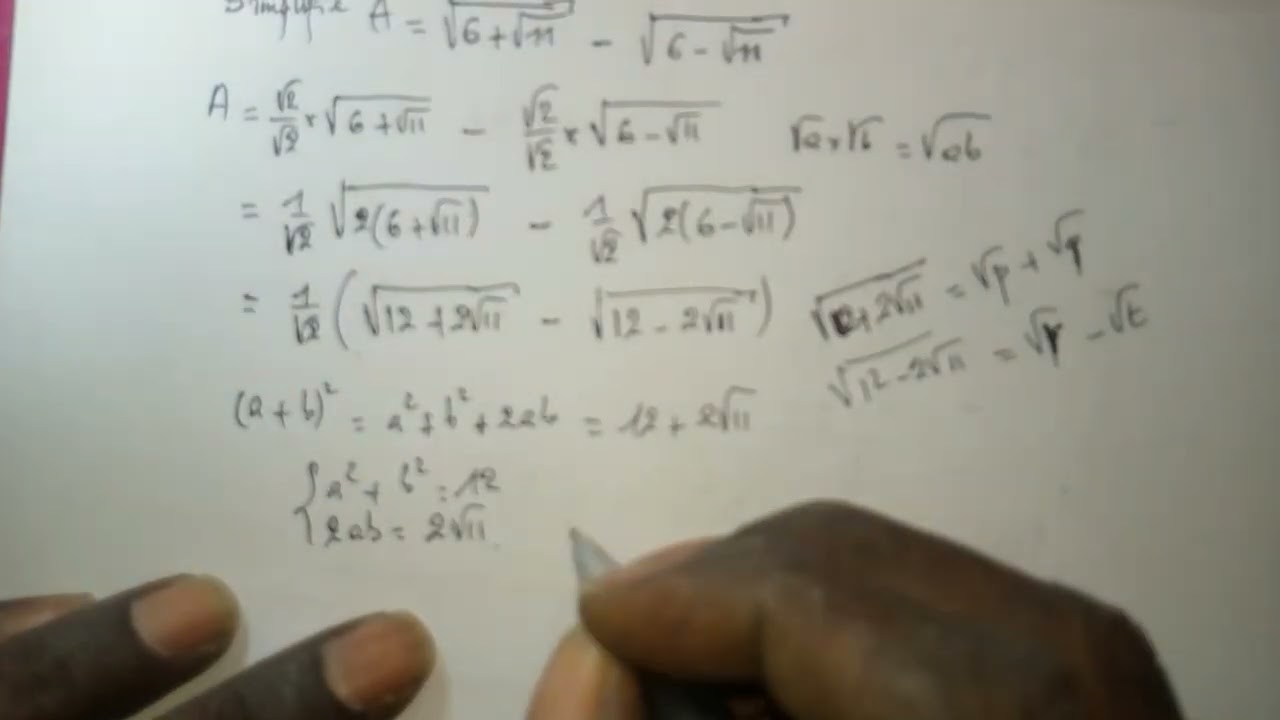 Simplifie A = √(6+√11) - √(6-√11)
A = √2/√2 × √(6+√11) - √2/√2 × √(6-√11)
√a×√b = √ab
= 1/√2 √(2(6+√11)) - 1/√2 √(2(6-√11))
= 1/√2 (√(12+2√11) - √(12-2√11))
√(12+2√11) = √p + √q
√(12-2√11) = √r - √t
(a+b)² = a²+b²+2ab = 12+2√11
{ a²+b² = 12
2ab = 2√11